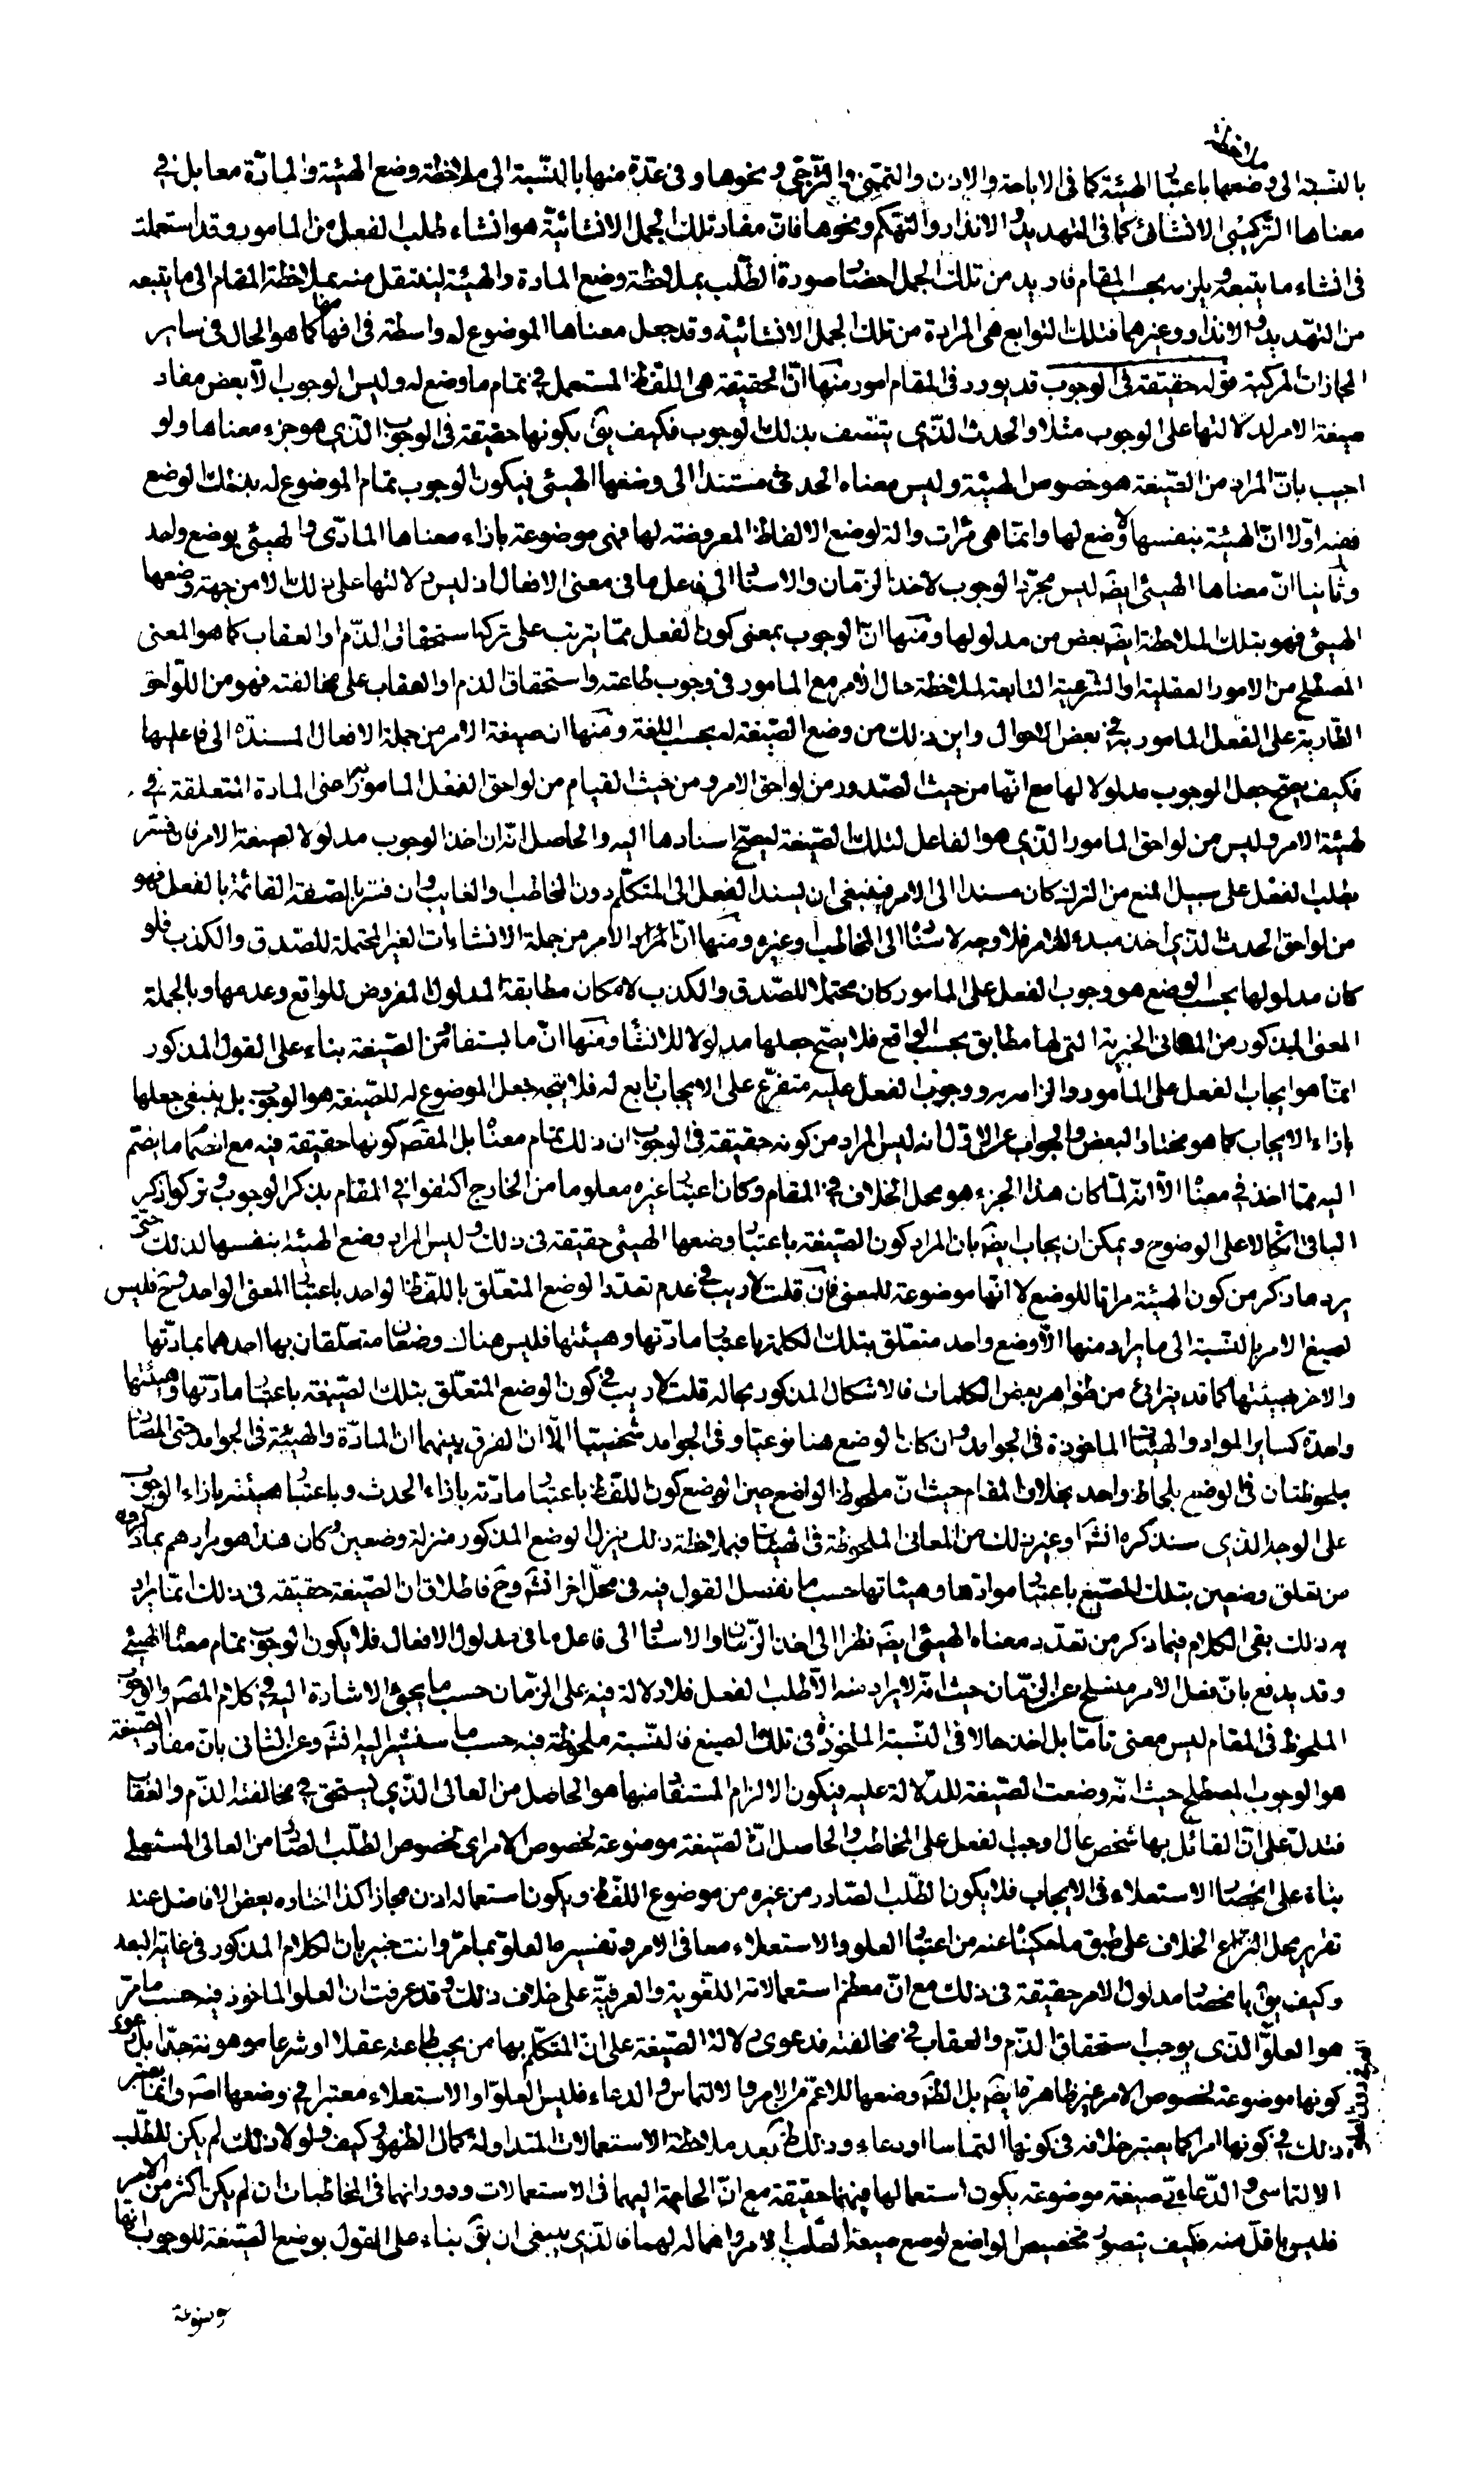 ملاحظة
بالنسبة الى وضعها باعتبار الهيئة كما فى الاباحة والاذن والتمنى والترجى ونحوها وفى عدة منها بالنسبة الى ملاحظة وضع الهيئة والمادة معا بل فى
معناها التركيبى الانشائى كما فى التهديد والانذار والتهكم ونحوها فان مفاد تلك الجمل الانشائية هو انشاء طلب الفعل من المامور وقد استعملت
فى انشاء ما يتبعه ويلزمه بحسب المقام فاريد من تلك الجمل احضار صورة الطلب بملاحظة وضع المادة والهيئة لينتقل منه بملاحظة المقام الى ما يتبعه
من التهديد والانذار وغيرهما فتلك التوابع هى المرادة من تلك الجمل الانشائية وقد جعل معناها الموضوع له واسطة فى افهامها كما هو الحال فى ساير
المجازات المركبة قوله حقيقة فى الوجوب قد يورد فى المقام امور منها ان الحقيقة هى اللفظ المستعمل فى تمام ما وضع له وليس الوجوب الا بعض مفاد
صيغة الامر لدلالتها على الوجوب مثلا والحدث الذى يتصف بذلك الوجوب فكيف يق بكونها حقيقة فى الوجوب الذى هو جزء معناها ولو
اجيب بان المراد من الصيغة هو خصوص الهيئة وليس معناه الحدثى مستندا الى وضعها الهيئى فيكون الوجوب تمام الموضوع له بذلك الوضع
ففيه اولا ان الهيئة بنفسها لا وضع لها وانما هى مرات والة لوضع الالفاظ المعروضة لها فهى موضوعة بازاء معناها المادى والهيئى بوضع واحد
وثانيا ان معناها الهيئى ايضا ليس مجرد الوجوب لاخذ الزمان والاسناد الى فاعل ما فى معنى الافعال اذ ليس دلالتها على ذلك الا من جهة وضعها
الهيئى فهو بتلك الملاحظة ايضا بعض من مدلولها ومنها ان الوجوب بمعنى كون الفعل مما يترتب على تركه استحقاق الذم او العقاب كما هو المعنى
المصطلح من الامور العقلية او الشرعية التابعة لملاحظة حال الامر مع المامور فى وجوب طاعته واستحقاق الذم او العقاب على مخالفته فهو من اللواحق
الطارية على الفعل المامور به فى بعض الاحوال واين ذلك من وضع الصيغة له بحسب اللغة ومنها ان صيغة الامر من جملة الافعال المسندة الى فاعليها
فكيف يصح جعل الوجوب مدلولا لها مع انها من حيث الصدور من لواحق الامر ومن حيث القيام من لواحق الفعل المامور به اعنى المادة المتعلقة فى
لهيئة الامر وليس من لواحق المامور الذى هو الفاعل لتلك الصيغة ليصح اسنادها اليه والحاصل انه ان اخذ الوجوب مدلولا لصيغة الامر فان فسر
بطلب الفعل على سبيل المنع من الترك كان مسندا الى الامر فينبغى ان يسند الفعل الى المتكلم دون المخاطب والغايب وان فسر بالصفة القائمة بالفعل فهو
من لواحق الحدث الذى اخذ مبدء للامر فلا وجه لاسناده الى المخاطب وغيره ومنها ان الامر من جملة الانشاءات الغير المحتملة للصدق والكذب فلو
كان مدلولها بحسب الوضع هو وجوب الفعل على المامور كان محتملا للصدق والكذب لامكان مطابقة المدلول المفروض للواقع وعدمها وبالجملة
المعنى المذكور من المعانى الخبرية التى لها مطابق بحسب الواقع فلا يصح جعلها مدلولا للانشاء ومنها ان ما يستفاد من الصيغة بناء على القول المذكور
انما هو ايجاب الفعل على المامور والزامه به ووجوب الفعل عليه متفرع على الايجاب تابع له فلا يتجه جعل الموضوع له للصيغة هو الوجوب بل ينبغى جعلها
بازاء الايجاب كما هو مختار البعض والجواب عن الاول انه ليس المراد من كونه حقيقة فى الوجوب ان ذلك تمام معناه بل المقصود كونها حقيقة فيه مع انضمام ما يضم
اليه مما اخذ فى معناه الا انه لما كان هذا الجزء هو محل الخلاف فى المقام وكان اعتبار غيره معلوما من الخارج اكتفوا فى المقام بذكر الوجوب وتركوا ذكر
الباقى اتكالا على الوضوح ويمكن ان يجاب ايضا بان المراد كون الصيغة باعتبار وضعها الهيئى حقيقة فى ذلك وليس المراد وضع الهيئة بنفسها لذلك حتى
يرد ما ذكر من كون الهيئة مراتا للوضع لا انها موضوعة للمعنى فان قلت لا ريب فى عدم تعدد الوضع المتعلق باللفظ الواحد باعتبار المعنى الواحد وح فليس
لصيغ الامر بالنسبة الى ما يراد منها الا وضع واحد متعلق بتلك الكلمة باعتبار مادتها وهيئتها فليس هناك وضعان متعلقان بها احدهما بمادتها
والاخر بهيئتها كما قد يترائى من ظواهر بعض الكلمات فالاشكال المذكور بحاله قلت لا ريب فى كون الوضع المتعلق بتلك الصيغة باعتبار مادتها وهيئتها
واحدة كساير المواد والهيئات الماخوذة فى الجوامد وان كان الوضع هنا نوعيا وفى الجوامد شخصيا الا ان الفرق بينهما ان المادة والهيئة فى الجوامد
ملحوظتان فى الوضع بلحاظ واحد بخلاف المقام حيث ان ملحوظ الواضع حين الوضع كون اللفظ باعتبار مادته بازاء الحدث وباعتبار هيئته بازاء الوجوب
على الوجه الذى سنذكره انش او غير ذلك من المعانى الملحوظة فى الهيئات فبملاحظة ذلك ينزل الوضع المذكور منزلة وضعين وكان هذا هو مرادهم بما ذكروه
من تعلق وضعين بتلك الصيغ باعتبار موادها وهيئاتها حسب ما نفصل القول فيه فى محل اخر انش وح فاطلاق ان الصيغة حقيقة فى ذلك انما يراد
به ذلك بقى الكلام فيما ذكر من تعدد معناه الهيئى ايضا نظرا الى اخذ الزمان والاسناد الى فاعل ما فى مدلول الافعال فلا يكون الوجوب تمام معناها الهيئى
وقد يدفع بان فعل الامر منسلخ عن الزمان حيث انه لا يراد منه الا طلب الفعل فلا دلالة فيه على الزمان حسب ما يجئ الاشارة اليه فى كلام المصنف والوجوب
الملحوظ فى المقام ليس معنى تاما بل اخذ حالا فى النسبة الماخوذة فى تلك الصيغ فالنسبة ملحوظة فيه حسب ما سنشير اليه انش وعن الثانى بان مفاد الصيغة
هو الوجوب المصطلح حيث انه وضعت الصيغة للدلالة عليه فيكون الالزام المستفاد منها هو الحاصل من العالى الذى يستحق فى مخالفته الذم والعقاب
فتدل على ان القائل بها شخص عال اوجب الفعل على المخاطب والحاصل ان الصيغة موضوعة لخصوص الامر اى لخصوص الطلب الصادر من العالى المستعلى
بناء على انحصار الاستعلاء فى الايجاب فلا يكون الطلب الصادر من غيره من موضوع اللفظ ويكون استعماله اذن مجازا كذا اختاره بعض الافاضل عند
تقرير محل النزاع الخلاف على طبق ما حكينا عنه من اعتبار العلو والاستعلاء معا فى الامر وتفسير العلو بما مر وانت خبير بان الكلام المذكور فى غاية البعد
وكيف يق بانحصار مدلول الامر حقيقة فى ذلك مع ان معظم استعمالاته اللغوية والعرفية على خلاف ذلك وقد عرفت ان العلو الماخوذ فيه حسب ما مر
هو العلو الذى يوجب استحقاق الذم والعقاب فى مخالفته فدعوى دلالة الصيغة على ان المتكلم بها من يجب طاعته عقلا او شرعا موهونة جدا بل دعوى
كونها موضوعة لخصوص الامر غير ظاهرة ايضا بل الظاهر وضعها للاعم من الامر والالتماس والدعاء فليس العلو او الاستعلاء معتبرا فى وضعها اصلا وانما يعتبر
ذلك فى كونها امرا كما يعتبر خلافه فى كونها التماسا او دعاء وذلك ظاهر بعد ملاحظة الاستعمالات المتداولة كمال الظهور كيف ولولا ذلك لم يكن للطلب
الالتماسى والدعائى صيغة موضوعة يكون استعمالها فيهما حقيقة مع ان الحاجة اليهما فى الاستعمالات ودورانهما فى المخاطبات ان لم يكن اكثر من الامر
فليس باقل منه فكيف يتصور تخصيص الواضع لوضع صيغة الطلب بالامر واهماله لهما فالذى ينبغى ان يق بناء على القول بوضع الصيغة للوجوب انها
وضوعة